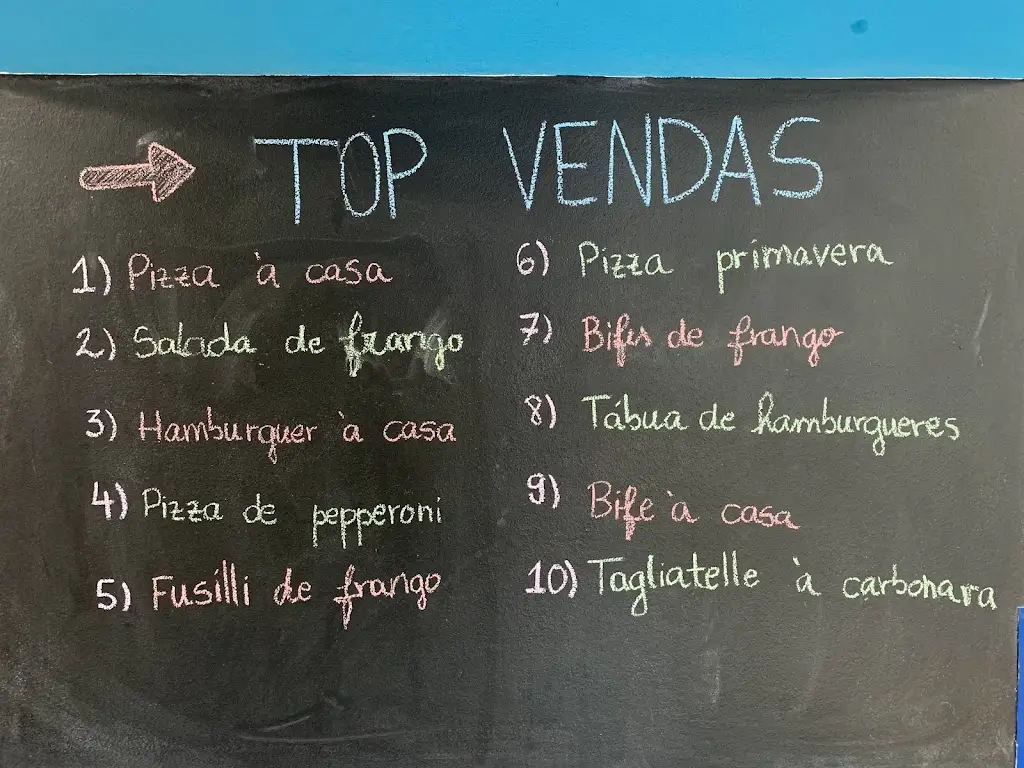 TOP VENDAS
1) Pizza à casa
2) Salada de frango
3) Hamburguer à casa
4) Pizza de pepperoni
5) Fusilli de frango
6) Pizza primavera
7) Bifes de frango
8) Tábua de hamburgueres
9) Bife à casa
10) Tagliatelle à carbonara